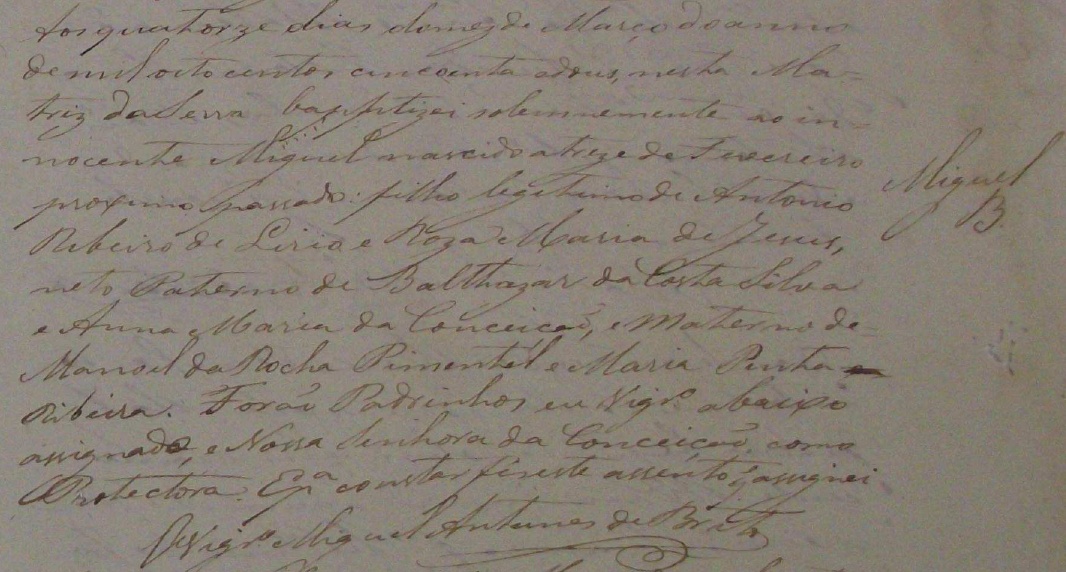 Aos quatorze dias do mez de Março do anno
de mil oito centos cincoenta e dous, nesta Ma-
triz da Serra baptizei solemnemente ao in-
nocente Miguel nascido a treze de Fevereiro
proximo passado: filho legitimo de Antonio
Ribeiro de Lirio e Roza Maria de Jesus,
neto Paterno de Balthazar da Costa Silva
e Anna Maria da Conceiçaõ, e Materno de
Manoel da Rocha Pimentel e Maria Pinta
Ribeira. Foraõ Padrinhos eu Vigr.o abaixo
assignado, e Nossa Senhora da Conceiçaõ como
Protectora. E p.a constar fiz este assento q̃ assignei
O Vigr.o Miguel Antunes de Brito
Miguel
B.